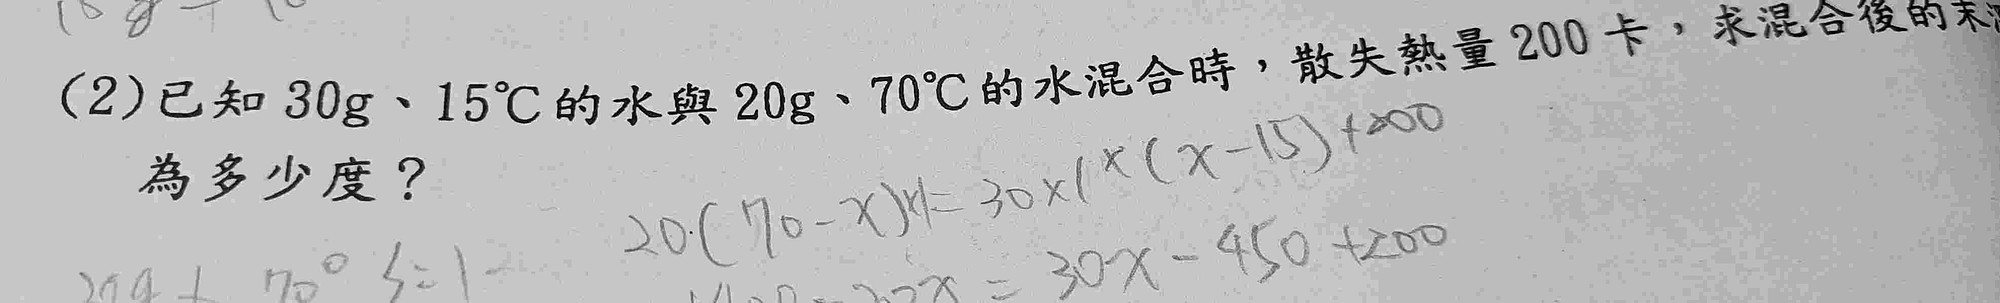 (2)已知 30g、15℃的水與 20g、70℃的水混合時，散失熱量 200 卡，求混合後的末
為多少度？
20(70-x)×1=30×1×(x-15)+200
70° S=1
=30x-450+200